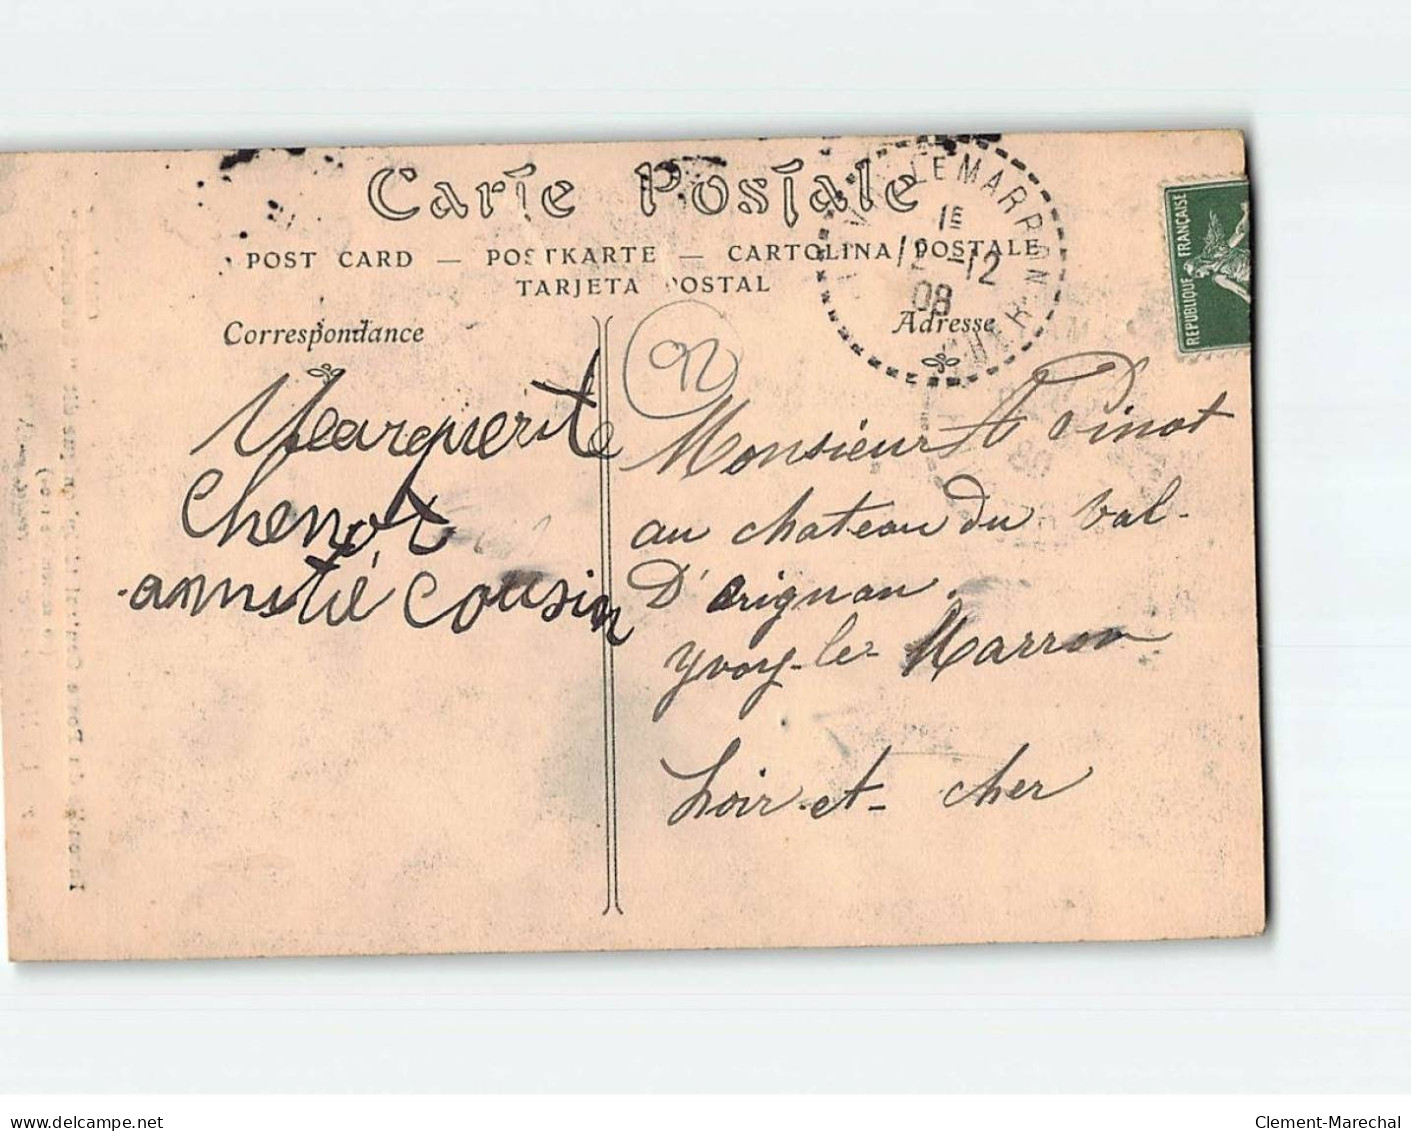 Carte Postale
POST CARD — POSTKARTE — CARTOLINA POSTALE
TARJETA POSTAL
Correspondance
Adresse
LEMARRON
1E
12 -12
08
CHER
REPUBLIQUE FRANÇAISE
92
Marguerite
Chenot
amitié cousin
Monsieur A Pinot
au chateau du Val-
D'Arignan.
Yvoy-le-Marron
Loir-et-cher
delcampe.net
Clement-Marechal